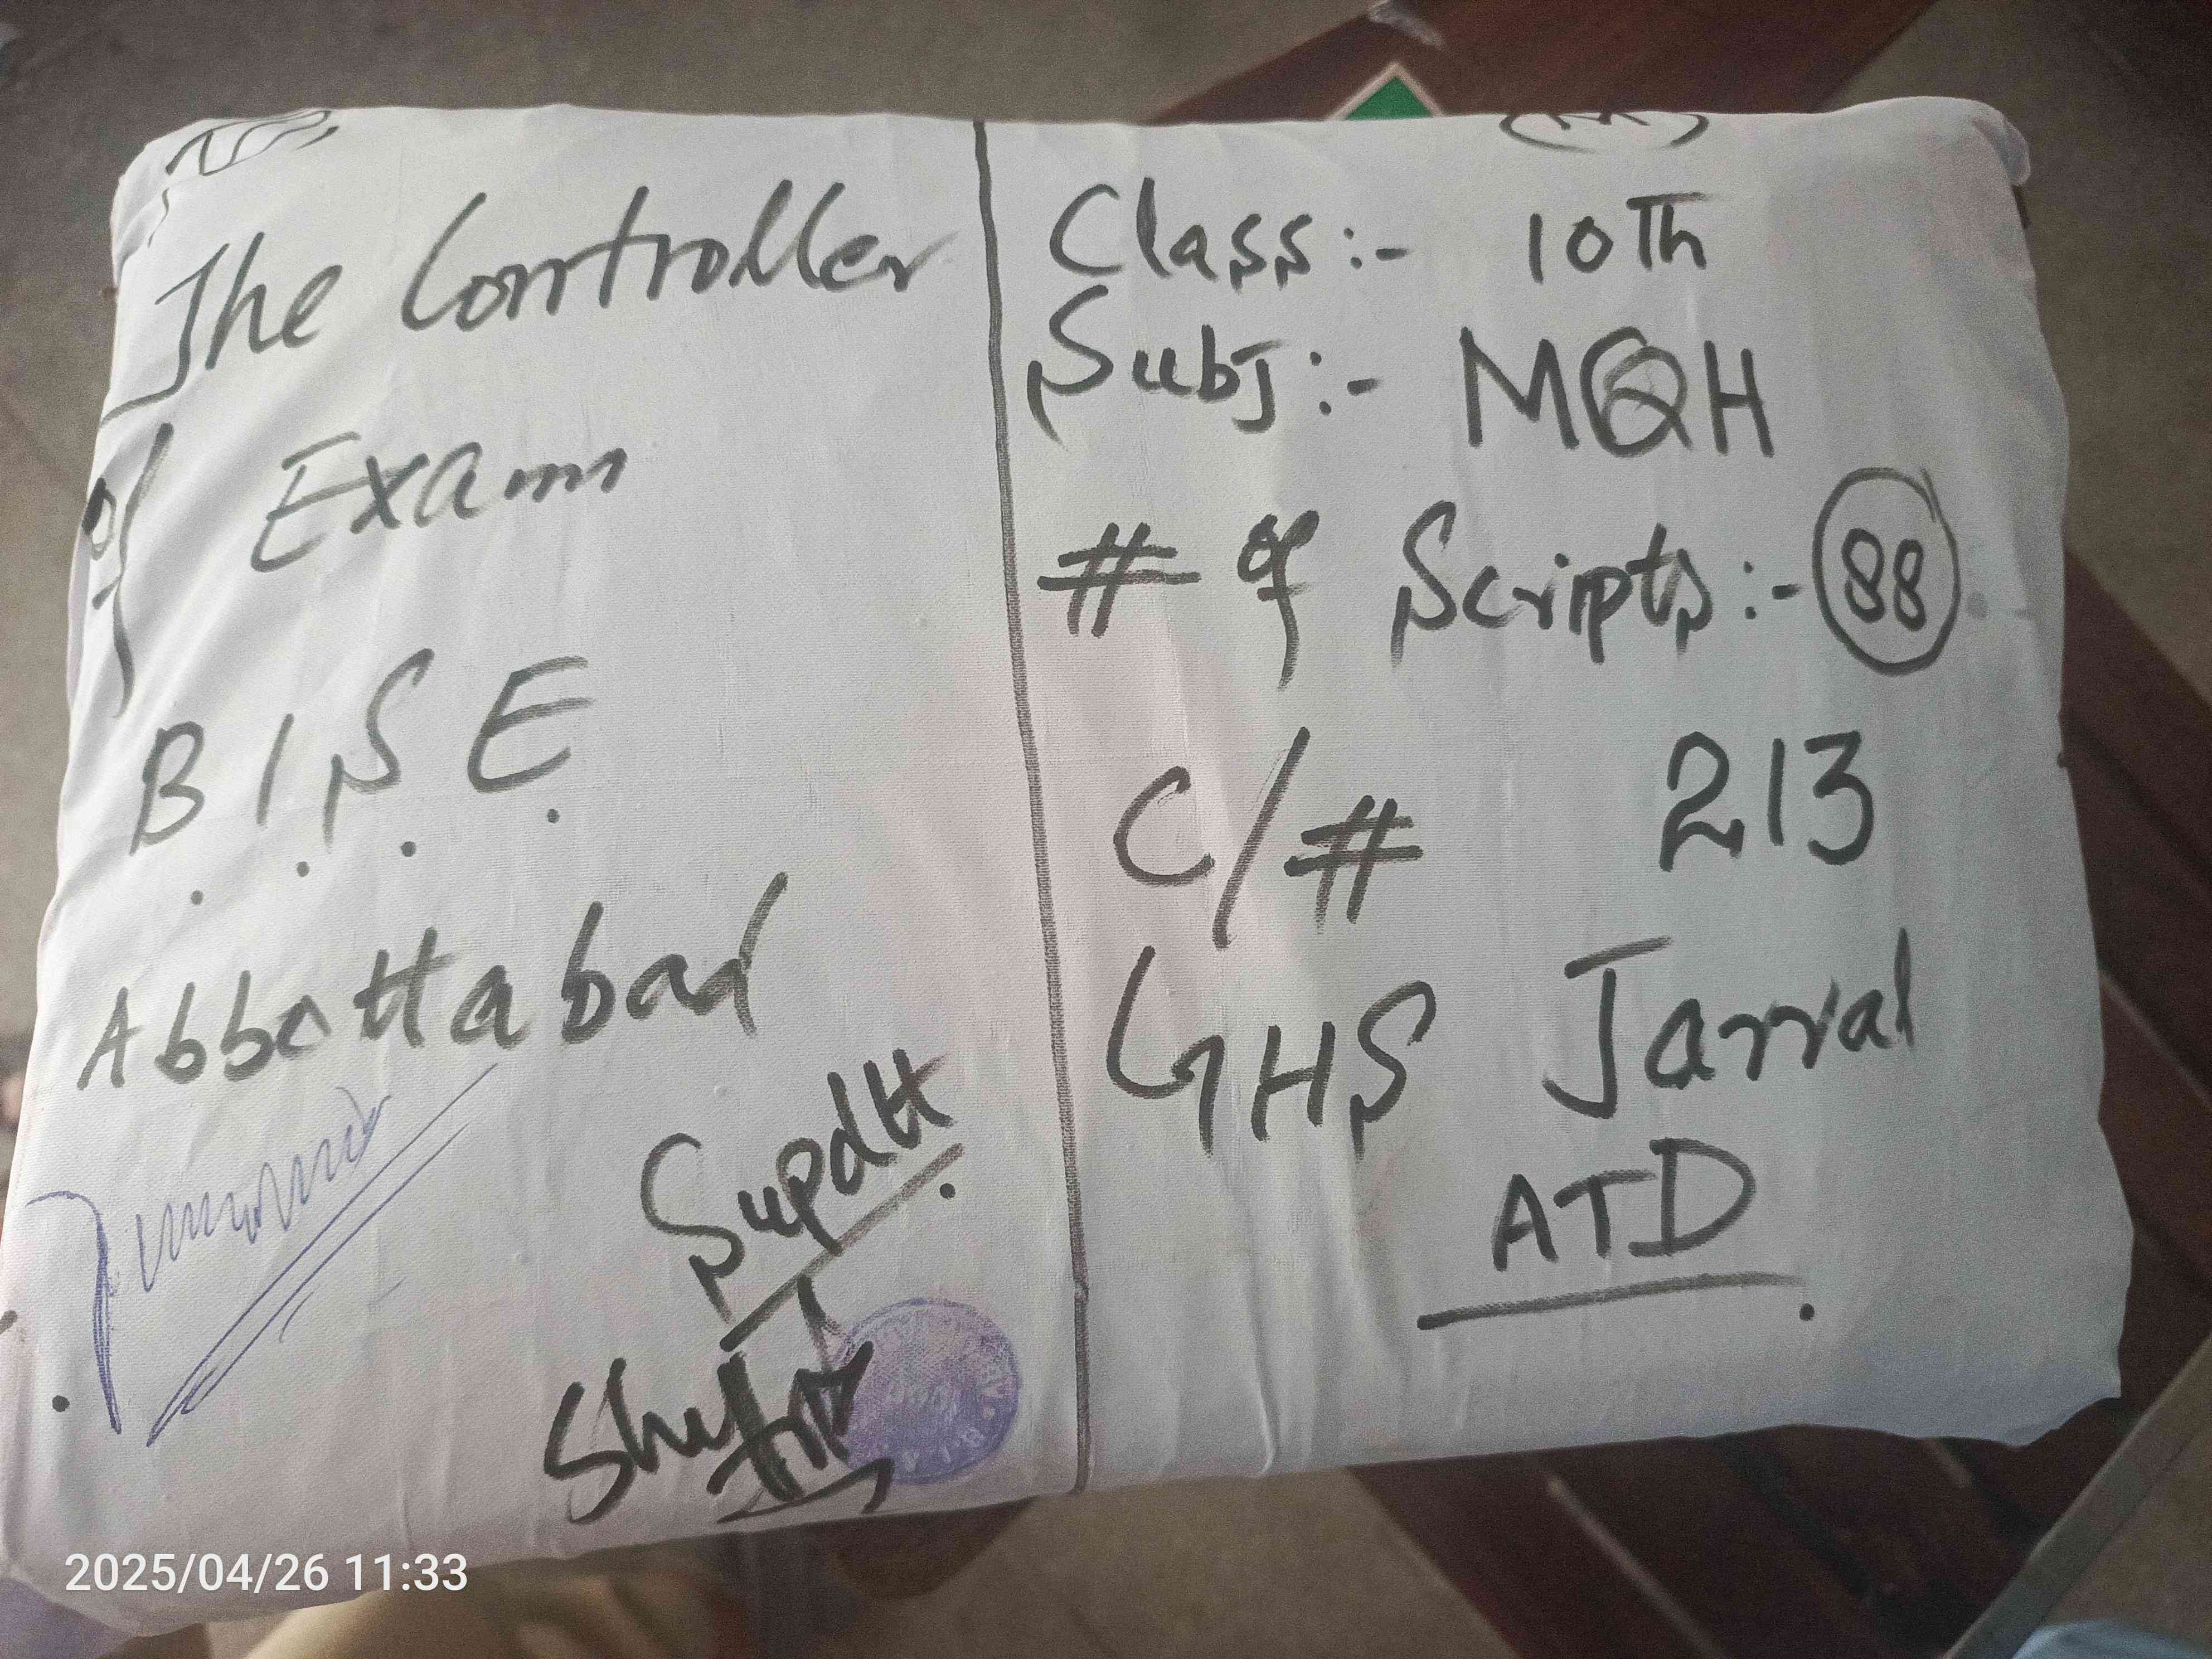 The Controller
of Exam
B.I.S.E.
Abbottabad
Supdtt.
Class:- 10Th
Subj:- MQH
# of Scripts:- 88
C/# 213
GHS Jarral
ATD.
2025/04/26 11:33